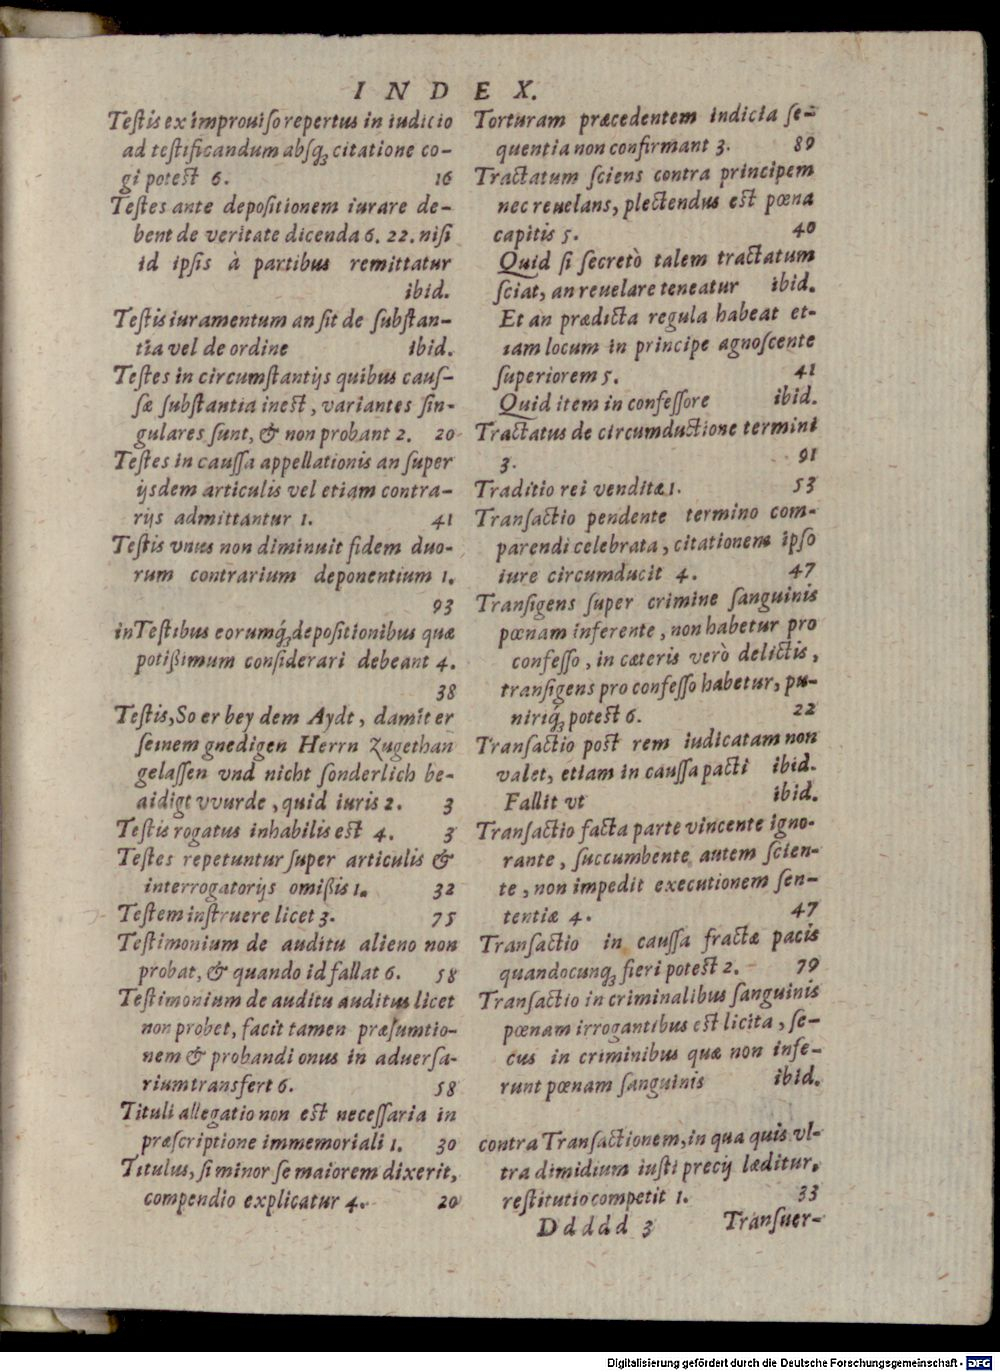 INDEX.
Teſtis ex improuiſo repertus in iudicio
ad teſtificandum abſq; citatione co-
gi poteſt 6. 16
Teſtes ante depoſitionem iurare de-
bent de veritate dicenda 6. 22. niſi
id ipſis à partibus remittatur
ibid.
Teſtis iuramentum an ſit de ſubſtan-
tia vel de ordine ibid.
Teſtes in circumſtantijs quibus cauſ-
ſæ ſubſtantia ineſt, variantes ſin-
gulares ſunt, & non probant 2. 20
Teſtes in cauſſa appellationis an ſuper
ijsdem articulis vel etiam contra-
rijs admittantur 1. 41
Teſtis vnus non diminuit fidem duo-
rum contrarium deponentium 1.
93
in Teſtibus eorumq́; depoſitionibus quæ
potißimum conſiderari debeant 4.
38
Teſtis, So er bey dem Aydt, damit er
ſeinem gnedigen Herrn zugethan
gelaſſen vnd nicht ſonderlich be-
aidigt vvurde, quid iuris 2. 3
Teſtis rogatus inhabilis eſt 4. 3
Teſtes repetuntur ſuper articulis &
interrogatorijs omißis 1. 32
Teſtem inſtruere licet 3. 75
Teſtimonium de auditu alieno non
probat, & quando id fallat 6. 58
Teſtimonium de auditu auditus licet
non probet, facit tamen præſumtio-
nem & probandi onus in aduerſa-
rium transfert 6. 58
Tituli allegatio non eſt neceſſaria in
præſcriptione immemoriali 1. 30
Titulus, ſi minor ſe maiorem dixerit,
compendio explicatur 4. 20
Torturam præcedentem indicia ſe-
quentia non confirmant 3. 89
Tractatum ſciens contra principem
nec reuelans, plectendus eſt pœna
capitis 5. 40
Quid ſi ſecretò talem tractatum
ſciat, an reuelare teneatur ibid.
Et an prædicta regula habeat et-
iam locum in principe agnoſcente
ſuperiorem 5. 41
Quid item in confeſſore ibid.
Tractatus de circumductione termini
3. 91
Traditio rei venditæ 1. 53
Tranſactio pendente termino com-
parendi celebrata, citationem ipſo
iure circumducit 4. 47
Tranſigens ſuper crimine ſanguinis
pœnam inferente, non habetur pro
confeſſo, in cæteris verò delictis,
tranſigens pro confeſſo habetur, pu-
niriq́; poteſt 6. 22
Tranſactio poſt rem iudicatam non
valet, etiam in cauſſa pacti ibid.
Fallit vt ibid.
Tranſactio facta parte vincente igno-
rante, ſuccumbente autem ſcien-
te, non impedit executionem ſen-
tentiæ 4. 47
Tranſactio in cauſſa fractæ pacis
quandocunq; fieri poteſt 2. 79
Tranſactio in criminalibus ſanguinis
pœnam irrogantibus eſt licita, ſe-
cus in criminibus quæ non infe-
runt pœnam ſanguinis ibid.
contra Tranſactionem, in qua quis vl-
tra dimidium iuſti precij læditur,
reſtitutio competit 1. 33
Ddddd 3 Tranſuer-
Digitalisierung gefördert durch die Deutsche Forschungsgemeinschaft - DFG